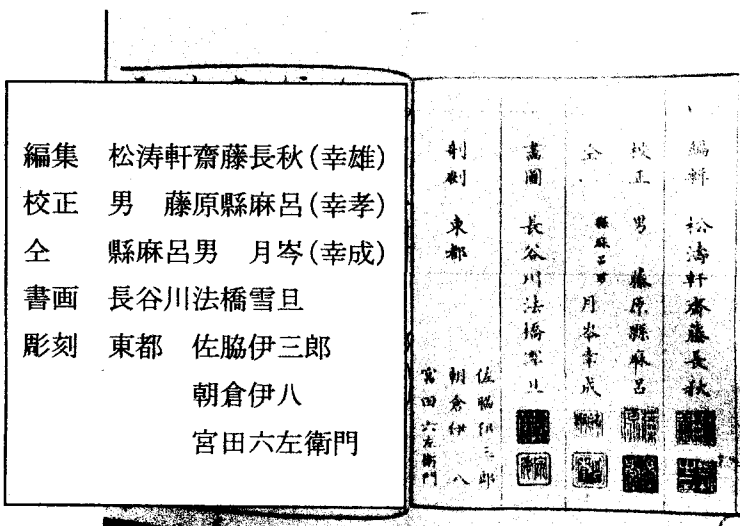 編集　松涛軒齋藤長秋(幸雄)
校正　男　藤原縣麻呂(幸孝)
仝　縣麻呂男　月岑(幸成)
書画　長谷川法橋雪旦
彫刻　東都　佐脇伊三郎
朝倉伊八
宮田六左衛門
編輯　松濤軒齋藤長秋
校正　男　藤原縣麻呂
仝　縣麻呂男　月岑幸成
畫圖　長谷川法橋雪旦
剞劂　東都
佐脇伊三郎
朝倉伊八
宮田六左衛門